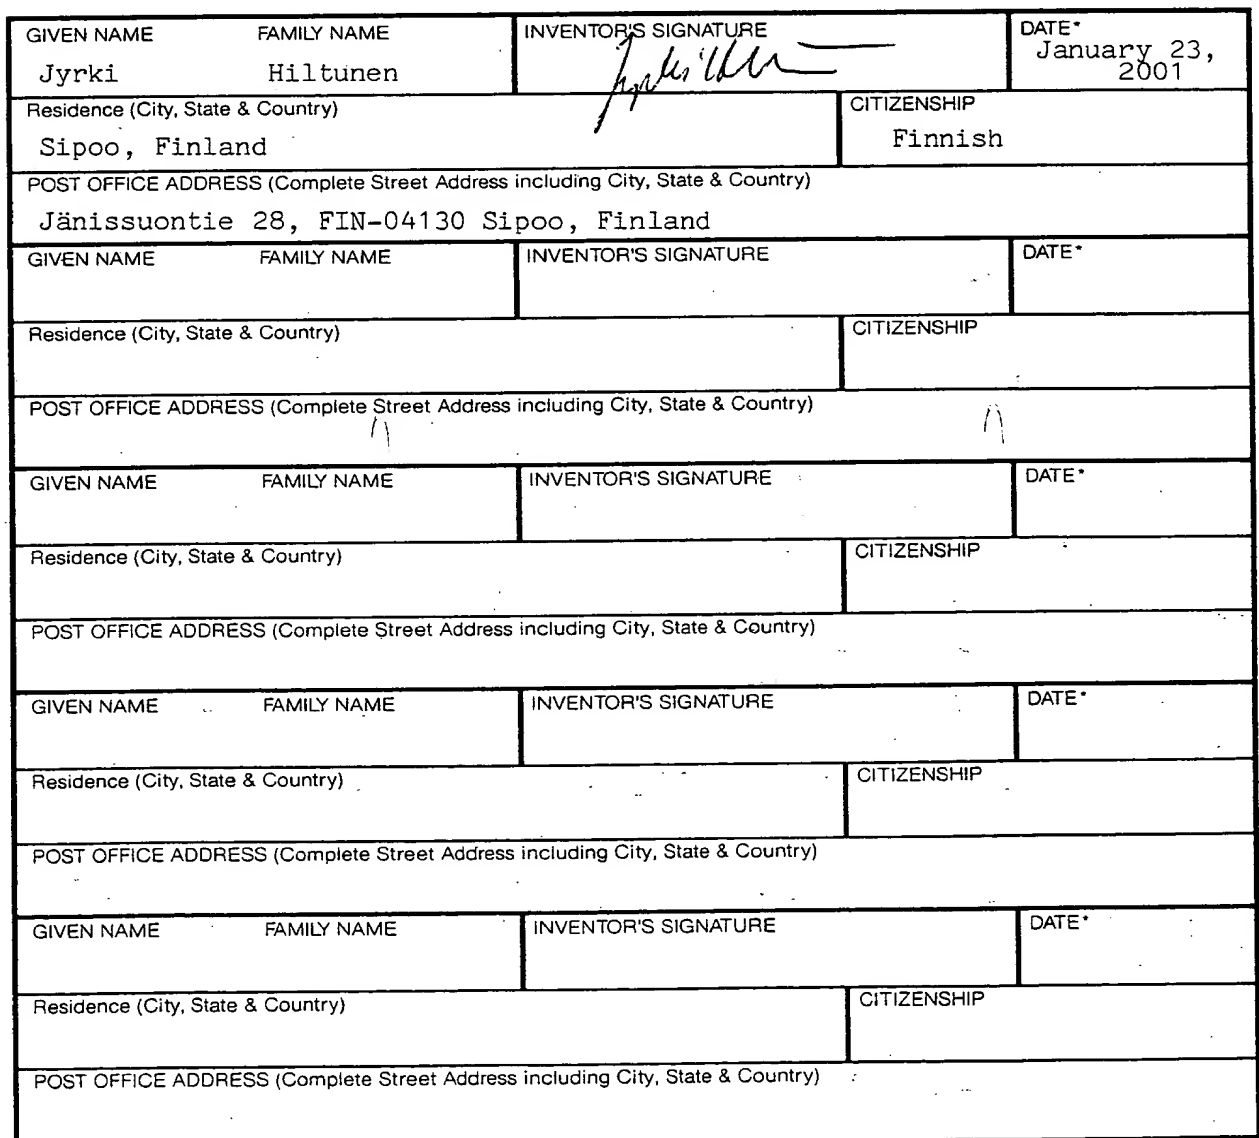 GIVEN NAME FAMILY NAME INVENTOR'S SIGNATURE DATE*
Jyrki Hiltunen January 23,
2001
Residence (City, State & Country) CITIZENSHIP
Sipoo, Finland Finnish
POST OFFICE ADDRESS (Complete Street Address including City, State & Country)
Jänissuontie 28, FIN-04130 Sipoo, Finland
GIVEN NAME FAMILY NAME INVENTOR'S SIGNATURE DATE*
Residence (City, State & Country) CITIZENSHIP
POST OFFICE ADDRESS (Complete Street Address including City, State & Country)
GIVEN NAME FAMILY NAME INVENTOR'S SIGNATURE DATE*
Residence (City, State & Country) CITIZENSHIP
POST OFFICE ADDRESS (Complete Street Address including City, State & Country)
GIVEN NAME FAMILY NAME INVENTOR'S SIGNATURE DATE*
Residence (City, State & Country) CITIZENSHIP
POST OFFICE ADDRESS (Complete Street Address including City, State & Country)
GIVEN NAME FAMILY NAME INVENTOR'S SIGNATURE DATE*
Residence (City, State & Country) CITIZENSHIP
POST OFFICE ADDRESS (Complete Street Address including City, State & Country)